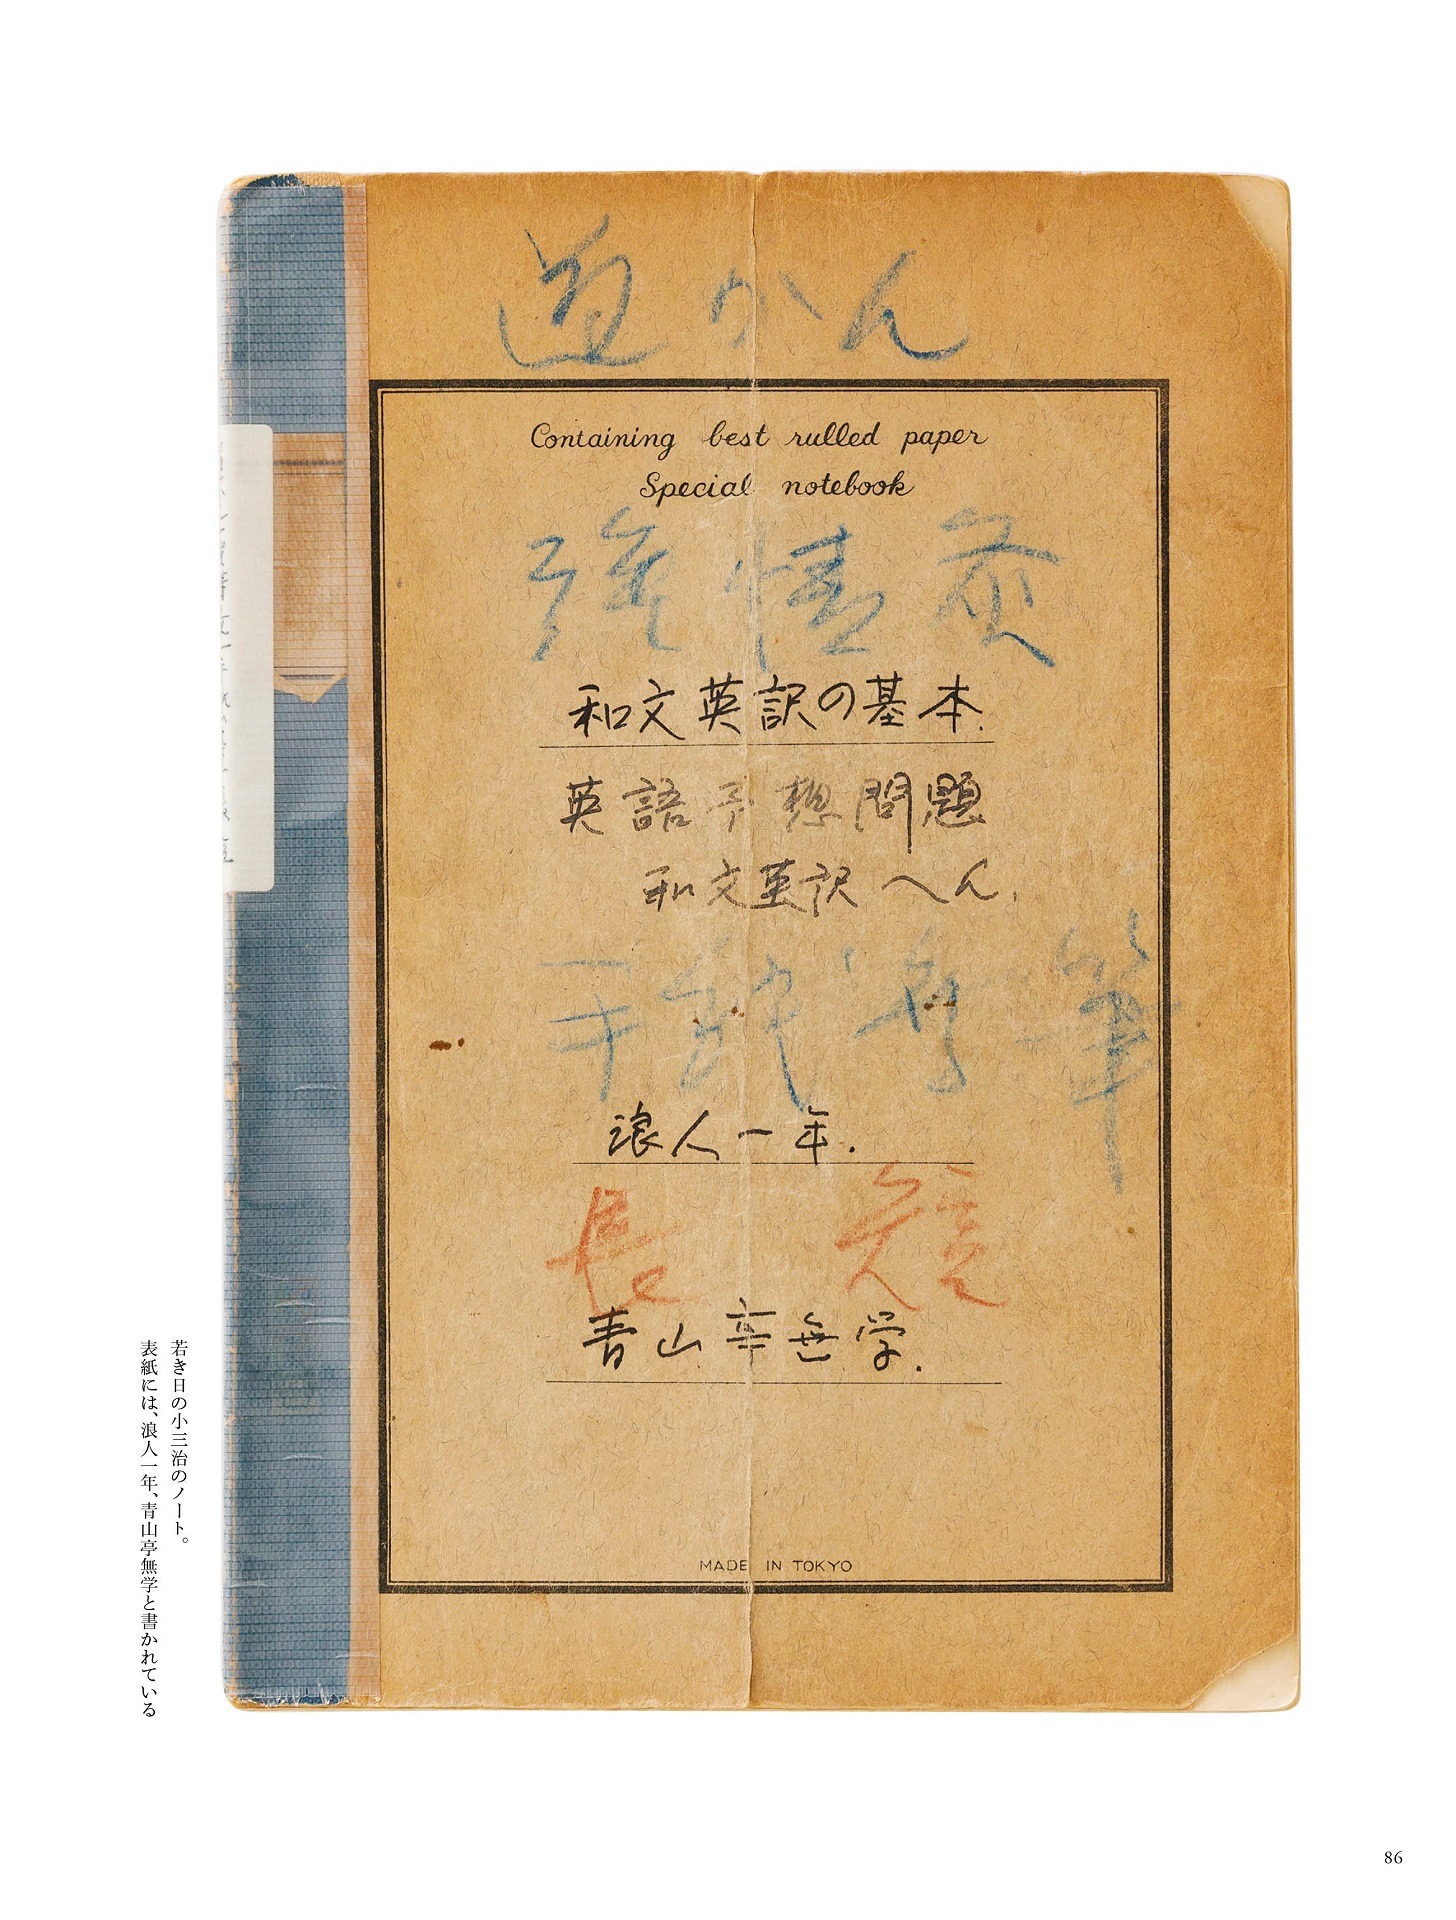 道かん
Containing best rulled paper
Special notebook
強情灸
和文英訳の基本.
英語予想問題
和文英訳へん.
手紙無筆
浪人一年.
長短
青山亭無学.
MADE IN TOKYO
若き日の小三治のノート。
表紙には、浪人一年、青山亭無学と書かれている
86